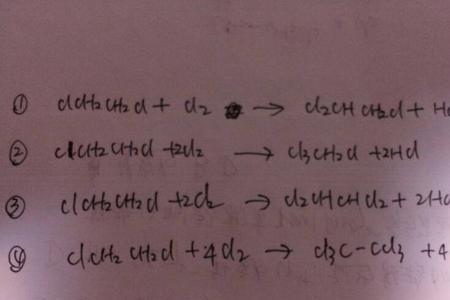 ① ClCH₂CH₂Cl + Cl₂ → Cl₂CHCH₂Cl + HC
② ClCH₂CH₂Cl + 2Cl₂ → Cl₃CH₂Cl + 2HCl
③ ClCH₂CH₂Cl + 2Cl₂ → Cl₂CHCHCl₂ + 2HC
④ ClCH₂CH₂Cl + 4Cl₂ → Cl₃C-CCl₃ + 4